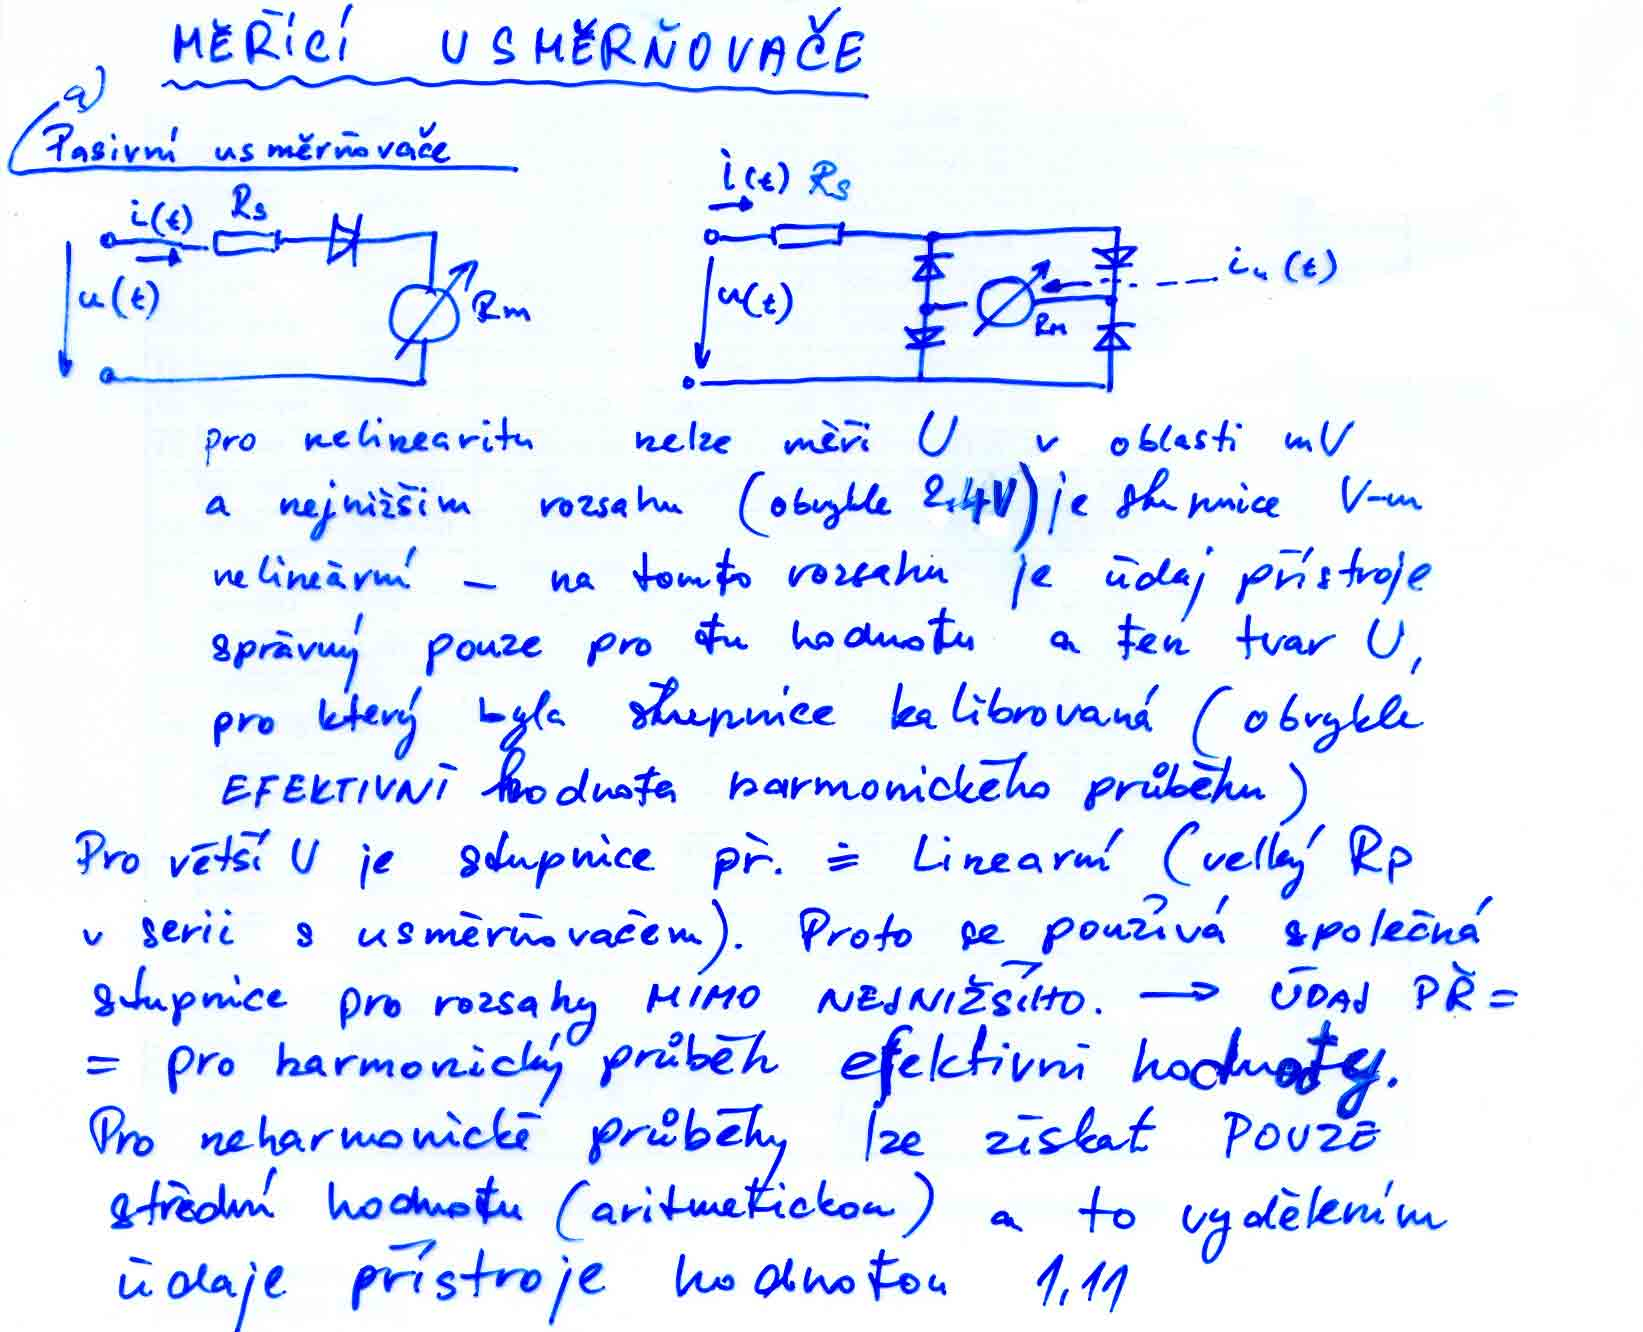 MĚŘÍCÍ USMĚRŇOVAČE
a)
Pasivní usměrňovače
i(t) Rs
u(t)
Rm
i(t) Rs
u(t)
Rm
iu(t)
pro nelinearitu nelze měři U v oblasti mV
a nejnižším rozsahu (obvykle 2.4V) je stupnice V-m
nelineární – na tomto rozsahu je údaj přístroje
správný pouze pro tu hodnotu a ten tvar U,
pro který byla stupnice kalibrovaná (obvykle
EFEKTIVNÍ hodnota harmonického průběhu)
Pro větší U je stupnice př. ≐ Linearní (velký Rp
v serii s usměrňovačem). Proto se používá společná
stupnice pro rozsahy MIMO NEJNIŽŠÍHO. → ÚDAJ PŘ =
= pro harmonický průběh efektivní hodnoty.
Pro neharmonické průběhy lze získat POUZE
střední hodnotu (aritmetickou) a to vydělením
údaje přístroje hodnotou 1,11